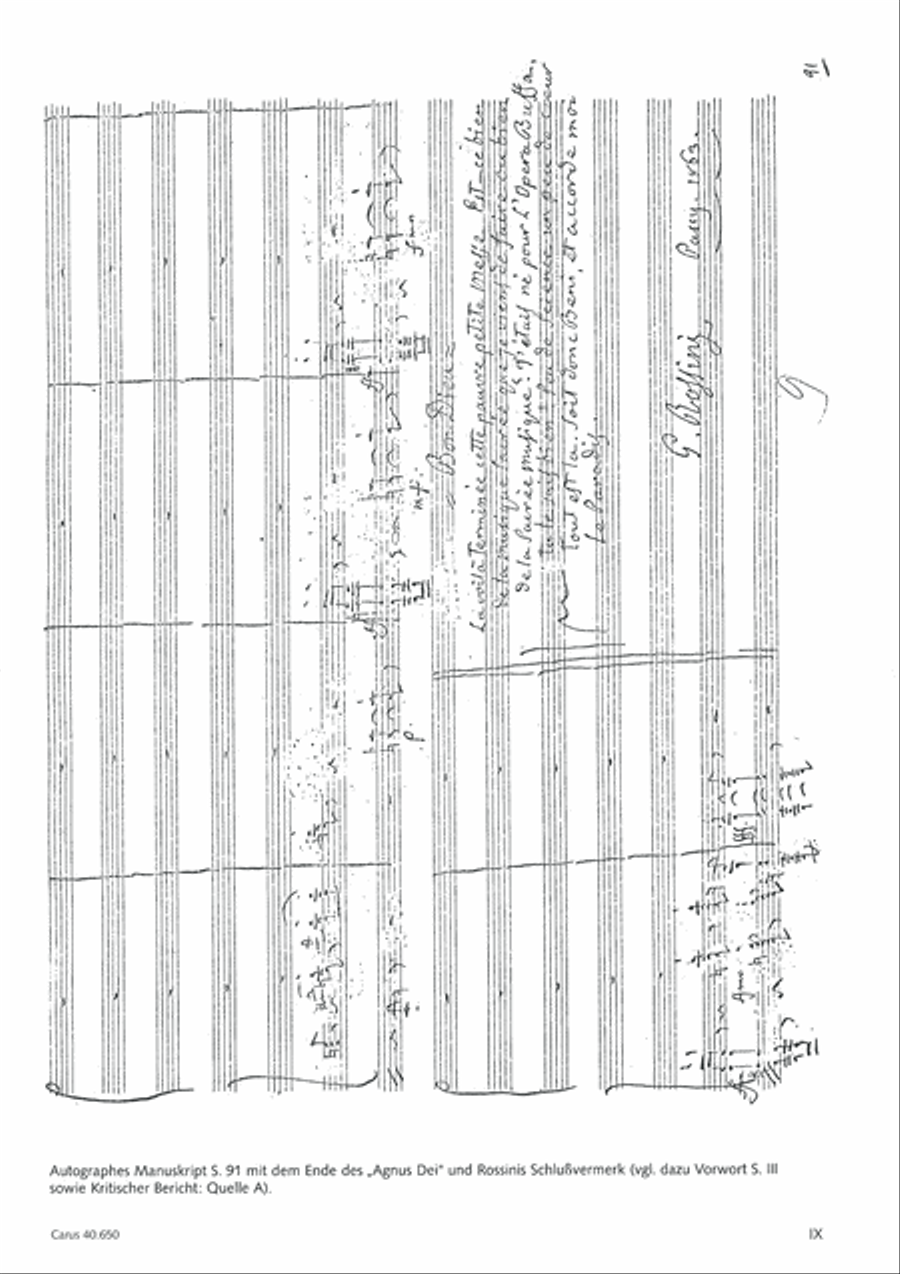 91
Bon Dieu
La voilà terminée cette pauvre petite Messe. Est-ce bien
de la musique Sacrée que je viens de faire ou bien
de la Sacrée musique? J'étais né pour l'Opera Buffa,
tu le sais bien! Peu de science un peu de coeur
tout est là. Soit donc Beni, et accorde moi
Le Paradis.
G. Rossini Passy. 1863.
mf.
p.
9
Autographes Manuskript S. 91 mit dem Ende des „Agnus Dei“ und Rossinis Schlußvermerk (vgl. dazu Vorwort S. III
sowie Kritischer Bericht: Quelle A).
Carus 40.650
IX